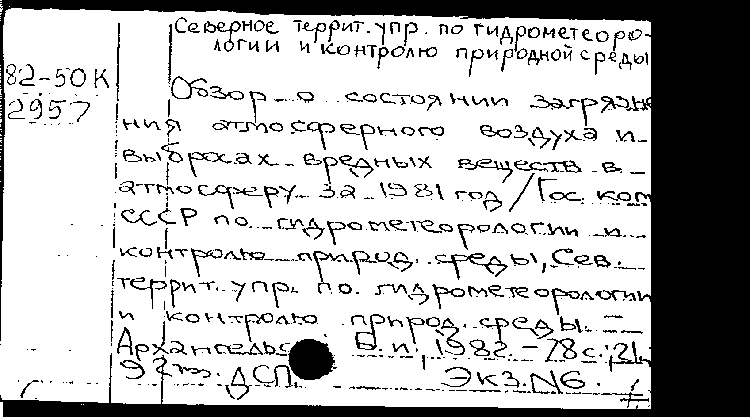 Северное террит. упр. по гидрометеоро-
логии и контролю природной среды
82-50К
2957
Обзор о состоянии загрязне
ния атмосферного воздуха и
выбросах вредных веществ в
атмосферу за 1981 год / Гос. ком
СССР по гидрометеорологии и
контролю природ. среды, Сев.
террит. упр. по гидрометеорологии
и контролю природ. среды. —
Архангельс Б.и., 1982. - 78 с.; 21
92 ДСП. Экз. N6.